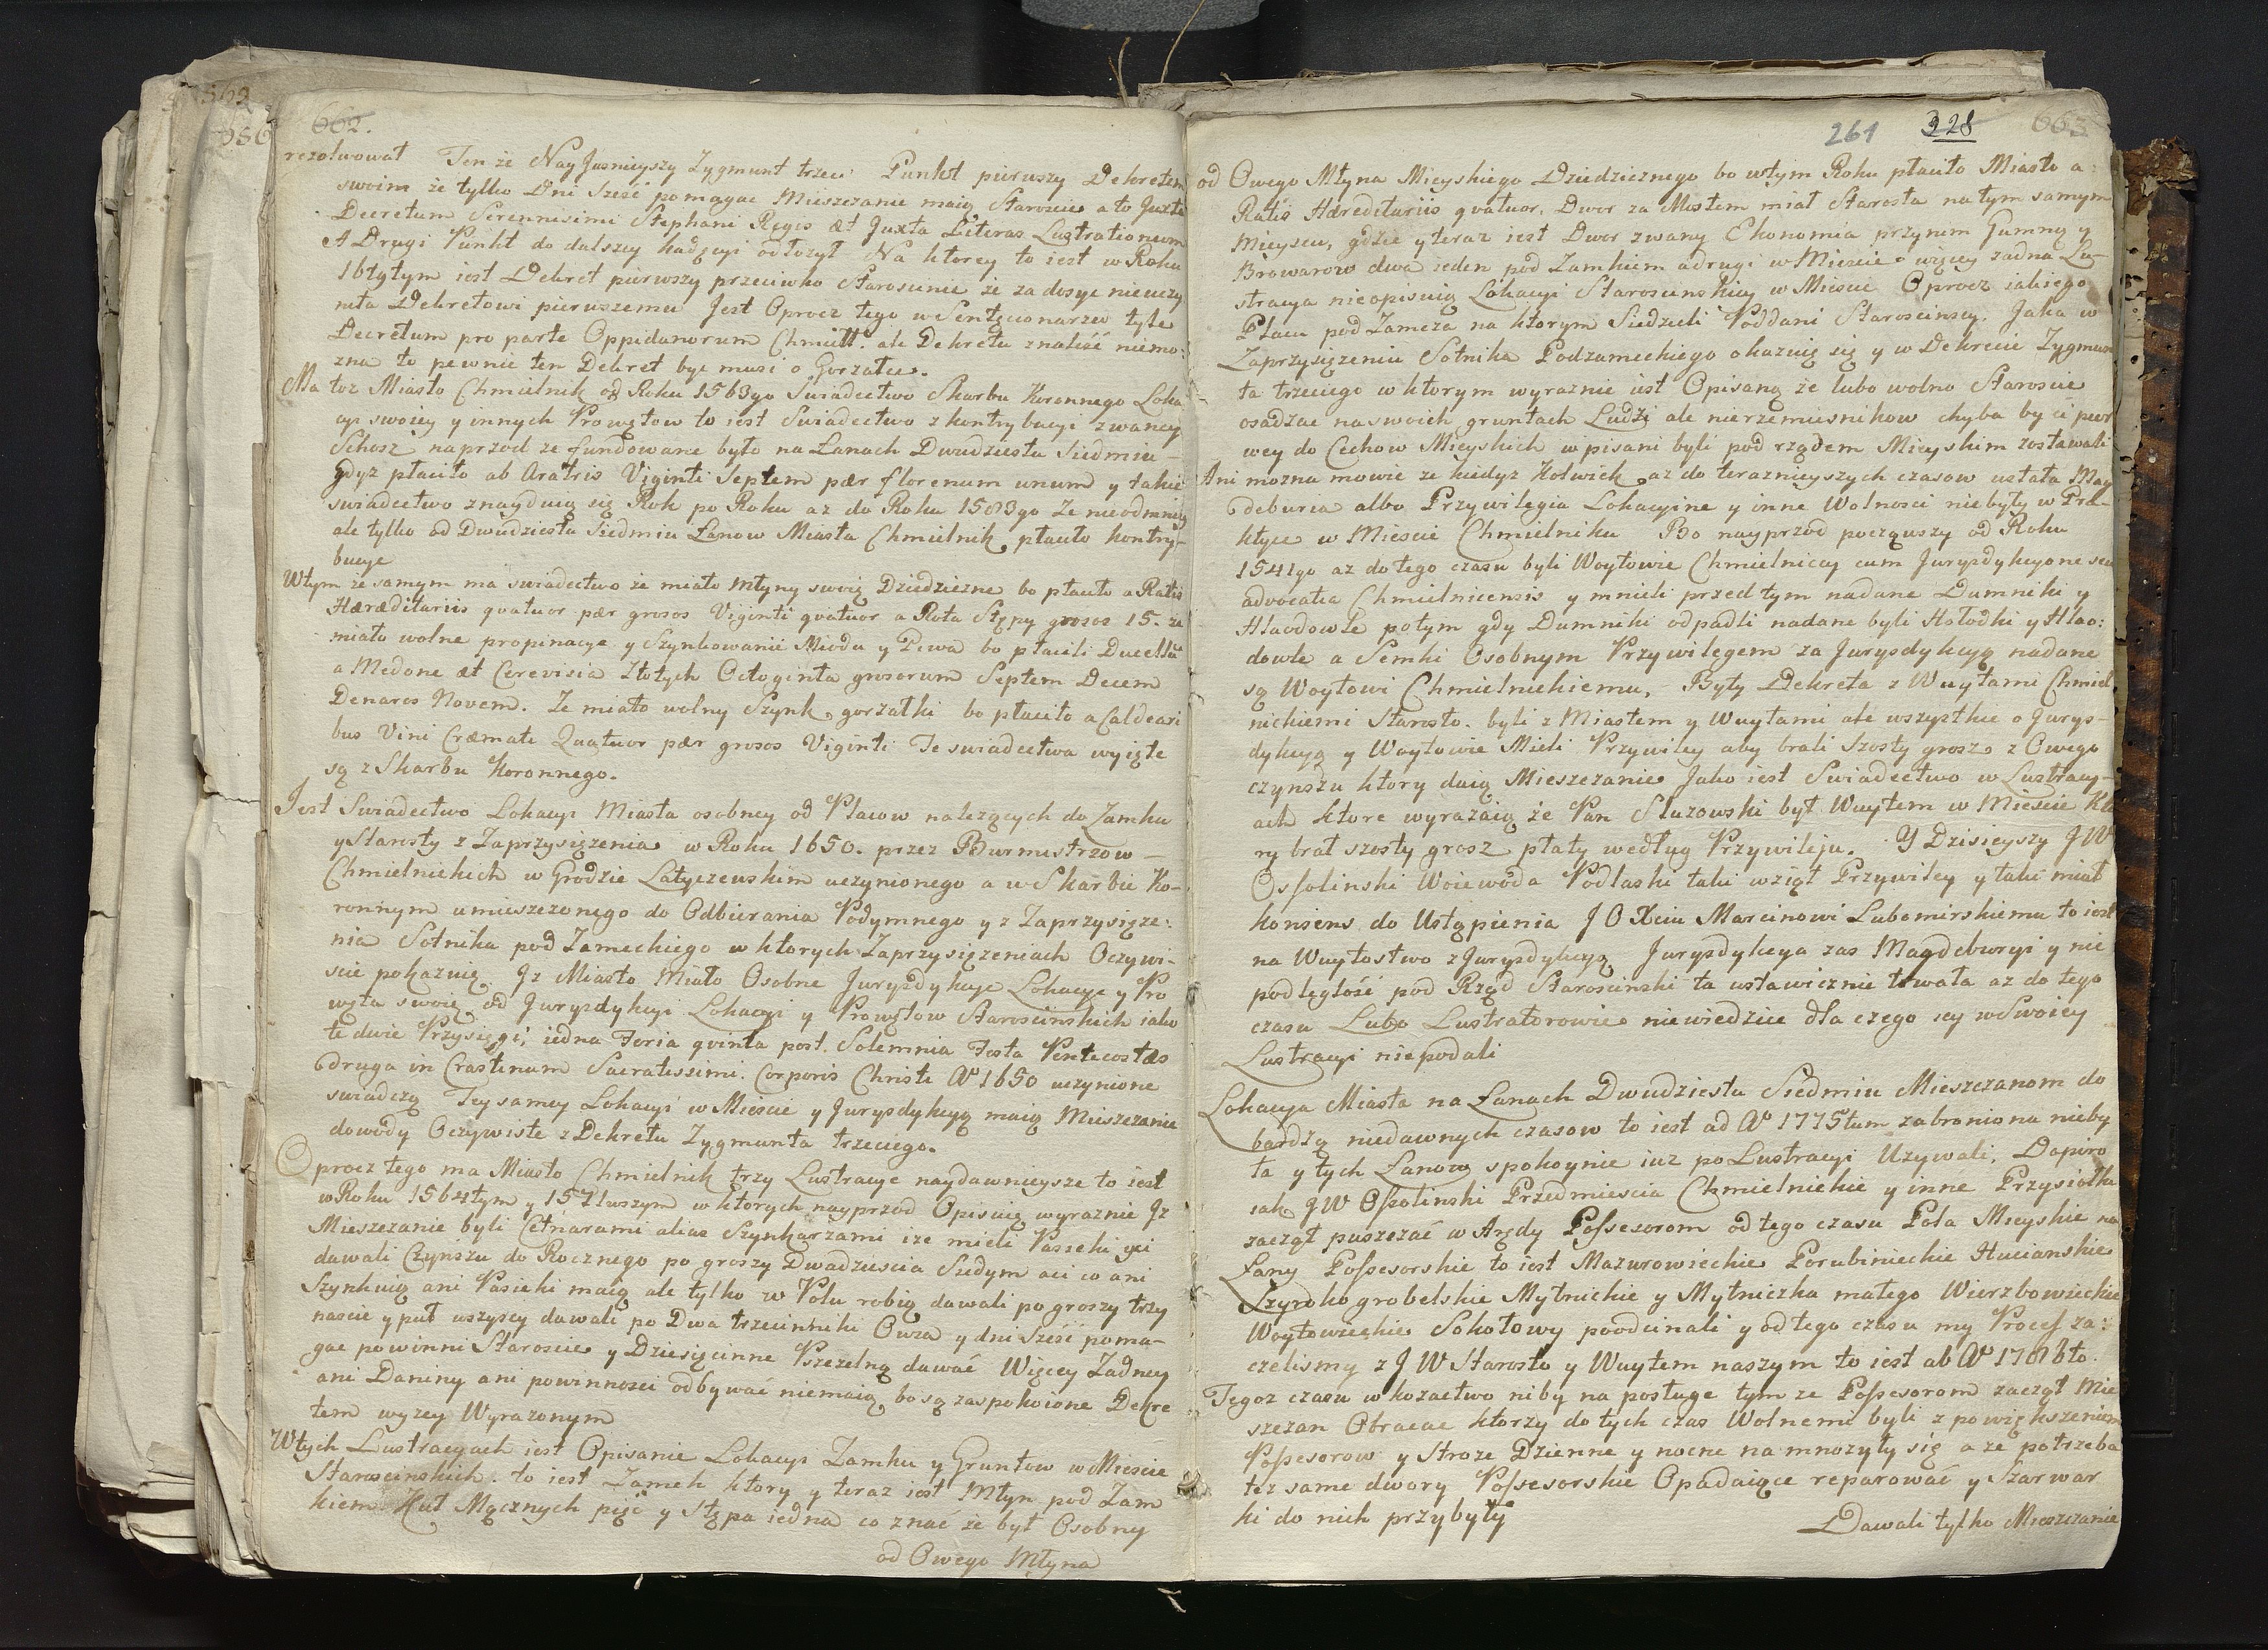 662.
rezolwował Ten że Nay Jasnieyszy Zygmunt trzeci Punkt pierwszy Dekretem
swoim że tylko Dni Sześć pomagac Mieszczanie maią Staroscie a to Juxta
Decretum Serennisimi Stephani Regis æt Juxta Literas Lustrationum
A Drugi Punkt do dalszey kadęcyi odłozył Na ktorey to iest w Roku
1619tym iest Dekret pierwszy przeciwko Staroscinie że za dosyc nieuczy
niła Dekretowi pierwszemu Jest Oprocz tego w Sentęcionarzu tyle
Decretum pro parte Oppidanorum Chmiell: ale Dekretu znaliść niemo:
zna to pewnie ten Dekret byc musi o Gorzałce.
Ma toz Miasto Chmielnik od Roku 1563go Swiadectwo Skarbu Koronnego Loka
cyi swoiey y innych Prowętow to iest Swiadectwo z kontrybucyi zwaney
Schosz naprzod ze fundowane było na Łanach Dwudziestu Siedmiu –
Gdyz płaciło ab Aratris Viginti Septem pær florenum unum y takie
swiadectwo znayduią się Rok po Roku az do Roku 1583go Ze nieodmnię
ale tylko od Dwudziestu Siedmiu Łanow Miasta Chmielnik płaciło kontry-
bucye
Wtym że samym ma swiadectwo że miało Młyny swoie Dziedziczne bo płaciło a Ratis
Hæræditariis qvatuor pær grosos Viginti qvatuor a Rota Stępy grosos 15. ze
miało wolne propinacye y Szynkowanie Miodu y Piwa bo płacili Ducellũ
a Medone æt Cerevisia Złotych Octoginta grosorum Septem Decem
Denaros Novem. Ze miało wolny Szynk gorzałki bo płaciło a Caldeari
bus Vini Cræmati Quatuor pær grosos Viginti Te swiadectwa wyięte
są z Skarbu Koronnego.
Jest Swiadectwo Lokacyi Miasta osobney od Placow nalezących do Zamku
y Starosty z Zaprzysięzenia w Roku 1650. przez Burmistrzow –
Chmielnickich w Grodzie Latyczewskim uczynionego a w Skarbie Ko-
ronnym umieszczonego do Odbierania Podymnego y z Zaprzysięze:
nia Sotnika pod Zameckiego w ktorych Zaprzysięzeniach Oczywi-
scie pokazuię Jz Miasto Miało Osobne Jurysdykcye Lokacye y Pro
węta swoie od Jurysdykcyi Lokacyi y Prowętow Staroscinskich iako
te dwie Przysięgi; iedna Feria qvinta post. Solemnia Festa Pentecostæs
druga in Crastinum Sacratissimi. Corporis Christi Aº 1650 uczynione
swiadczą Tey samey Lokacyi w Miescie y Jurysdykcyą maią Mieszczanie
dowody Oczywiste z Dekretu Zygmunta trzeciego.
Oprocz tego ma Miasto Chmielnik trzy Lustracye naydawnieysze to iest
w Roku 1564tym y 1571wszym w ktorych nayprzod Opisuią wyraznie Jz
Mieszczanie byli Cetnarami alias Szynkarzami ize mieli Pasieki yci
dawali Czynszu do Rocznego po groszy Dwadziescia Siedym aci co ani
Szynkuią ani Pasieki maią ale tylko w Polu robią dawali po groszy trzy
nascie y puł wszyscy dawali po Dwa trzecinniki Owsa y dni Sześć poma-
gac powinni Staroscie y Dziesięcinne Pszczelną dawać Więcey Zadney
ani Daniny ani powinnosci odbywać niemaią bo są zaspokoione Dekre
tem wyzey Wyrazonym
Wtych Lustracyach iest Opisanie Lokacyi Zamku y Gruntow w Miescie
Staroscinskich. to iest Zamek ktory y teraz iest Młyn pod Zam
kiem Kuł Mącznych pięć y Stępa iedna co znać że był Osobny
od Owego Młyna
261 328 663
od Owego Młyna Mieyskiego Dziedzicznego bo wtym Roku płaciło Miasto a:
Ratis Hæreditariis qvatuor. Dwor za Mostem miał Starosta natym samym
Mieyscu, gdzie y teraz iest Dwor zwany Ekonomia przynim Gumna y
Browarow dwa ieden pod Zamkiem a drugi w Miescie więcey zadna Lu-
stracya nieopisuię Lokacyi Staroscinskiey w Miescie Oprocz iakiego
Placu pod Zamcza na ktorym Siedzieli Poddani Staroscinscy. Jaka w
Zaprzysięzeniu Sotnika Podzameckiego okazuię się y w Dekrecie Zygmun
ta trzeciego w ktorym wyraznie iest Opisaną że lubo wolno Staroscie
osadzac na swoich gruntach Ludzi ale nierzemiesnikow chyba by ci pier
wey do Cechow Mieyskich wpisani byli pod rządem Mieyskim zostawali
Ani mozna mowic ze kiedyz Kolwiek az do teraznieyszych czasow ustała Mag
deburia albo Przywilegia Lokacyine y inne Wolnosci niebyły w Pra-
ktyce w Miescie Chmielniku Bo nayprzod począwszy od Roku
1541go az do tego czasu byli Woytowie Chmielniccy cum Jurysdykcyone seu
advocatia Chmielnicensis y mnieli przed tym nadane Dumniki y
Hłaodowle potym gdy Dumniki odpadli nadane byli Hołodki y Hłao:
dowle a Semki Osobnym Przywilegem za Jurysdykcyą nadane
są Woytowi Chmielnickiemu, Były Dekreta z Wuytami Chmiel
nickiemi Starosto. byli z Miastem y Wuytami ale wszystkie o Jurys-
dykcyą y Woytowie Mieli Przywiley aby brali Szosty grosz z Owego
czynszu ktory daią Mieszczanie Jako iest Swiadectwo w Lustracy-
ach ktore wyrazaią że Pan Sluzowski był Wuytem w Miescie Kto
ry brał szosty grosz płaty według Przywileju. Y Dzisieyszy JW
Ossolinski Woiewoda Podlaski taki wziął Przywiley y taki miał
konsens do Ustąpienia J O Xciu Marcinowi Lubomirskiemu to iest
na Wuytostwo z Jurysdykcyą Jurysdykcya zas Magdeburyi y nie
podległość pod Rząd Staroscinski ta ustawicznie trwała az do tego
czasu Lubo Lustratorowie niewiedzice dla czego iey w Swoiey
Lustracyi niepodali
Lokacya Miasta na Łanach Dwudziestu Siedmiu Mieszczanom do
bardzą niedawnych czasow to iest ad Aº 1775tum zabroniona nieby
ła y tych Łanow spokoynie iuz po Lustracyi Uzywali. Dapiro
iak JW Ossolinski Przedmiescia Chmielnickie y inne Przysiołki
zaczął puszczać w Arędy Possesorom od tego czasu Pola Mieyskie na
Łany Possesorskie to iest Mazurowieckie Porubinieckie Hucianskie
Szyroko grobelskie Mytnickie y Mytniczka małego Wierzbowieckie
Woytowieckie Sokołowy poodcinali y od tego czasu my Process za:
czelismy z J W Starosto y Wuytem naszym to iest ab Aº 1786to.
Tegoz czasu w kozactwo niby na posługe tym ze Possesorom zaczął Mie
szczan Obracac ktorzy do tych czas Wolnemi byli z powiększeniem
Possesorow y Stroze Dzienne y nocne namnozyły się a ze potrzeba
też same dwory Possesorskie Opadaiące reparować y Szarwar
ki do nich przybyły
Dawali tylko Mieszczanie